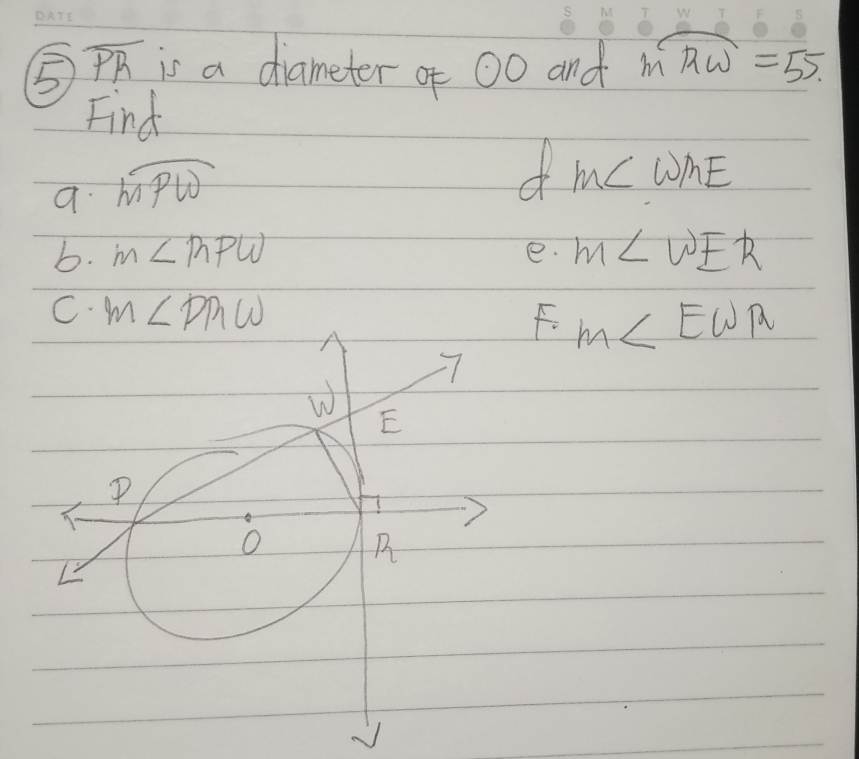 DATE S M T W T F S
⑤ PR is a diameter of ⊙O and mRW = 55.
Find
a. mPW
b. m∠RPW
C. m∠PRW
d m∠ WRE
e. m∠ WER
F. m∠ EWR
W
E
P
O
R